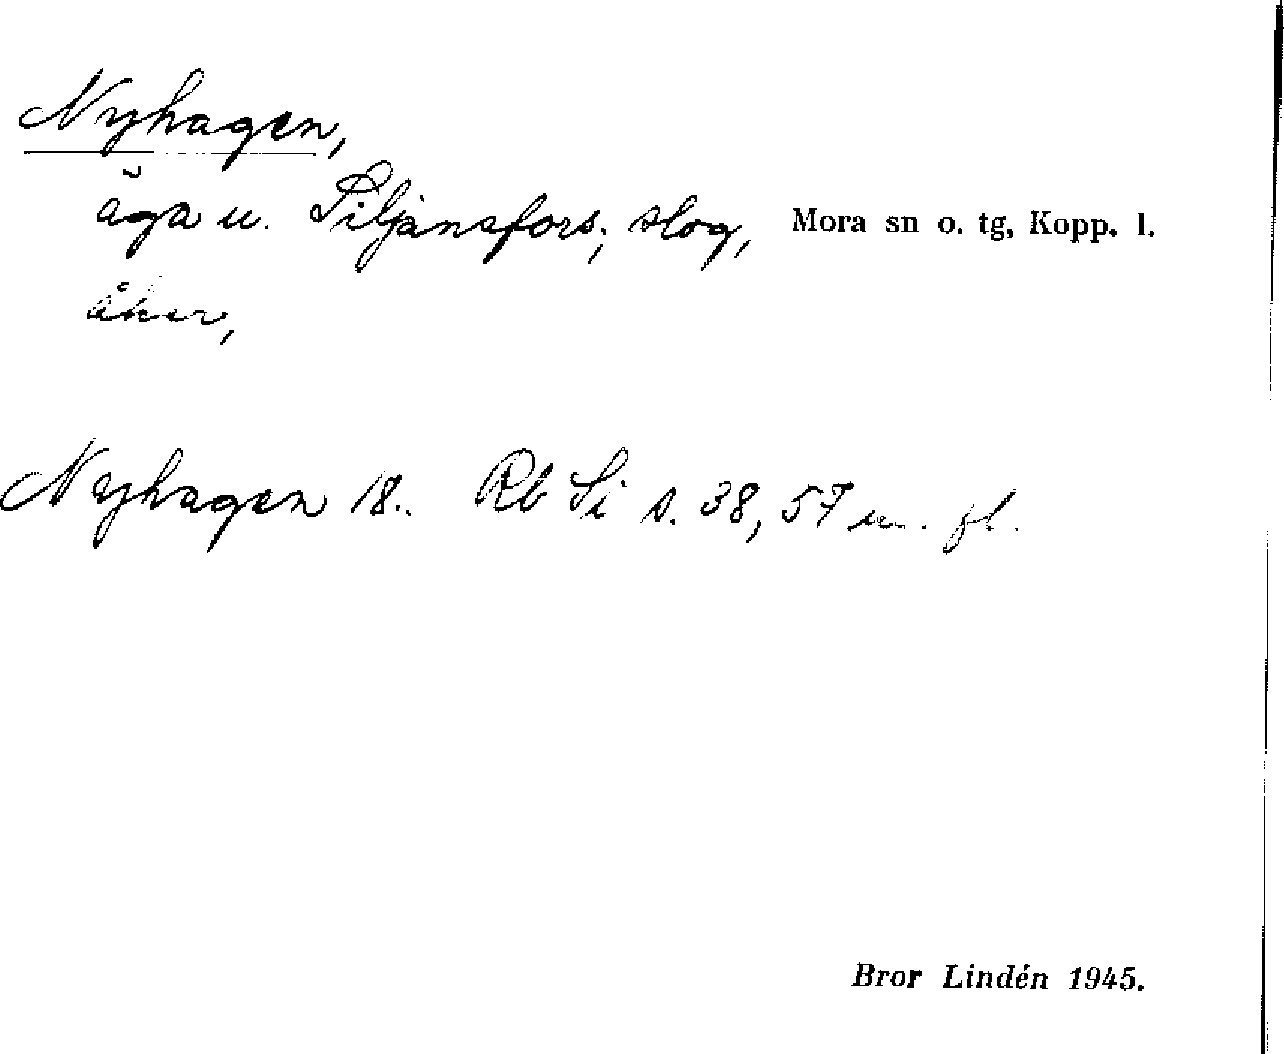 Nyhagen,
äga u. Siljansfors; slog, Mora sn o. tg, Kopp. l.
åker,
Nyhagen 18.. Rb Si s. 38, 57 m. fl.
Bror Lindén 1945.